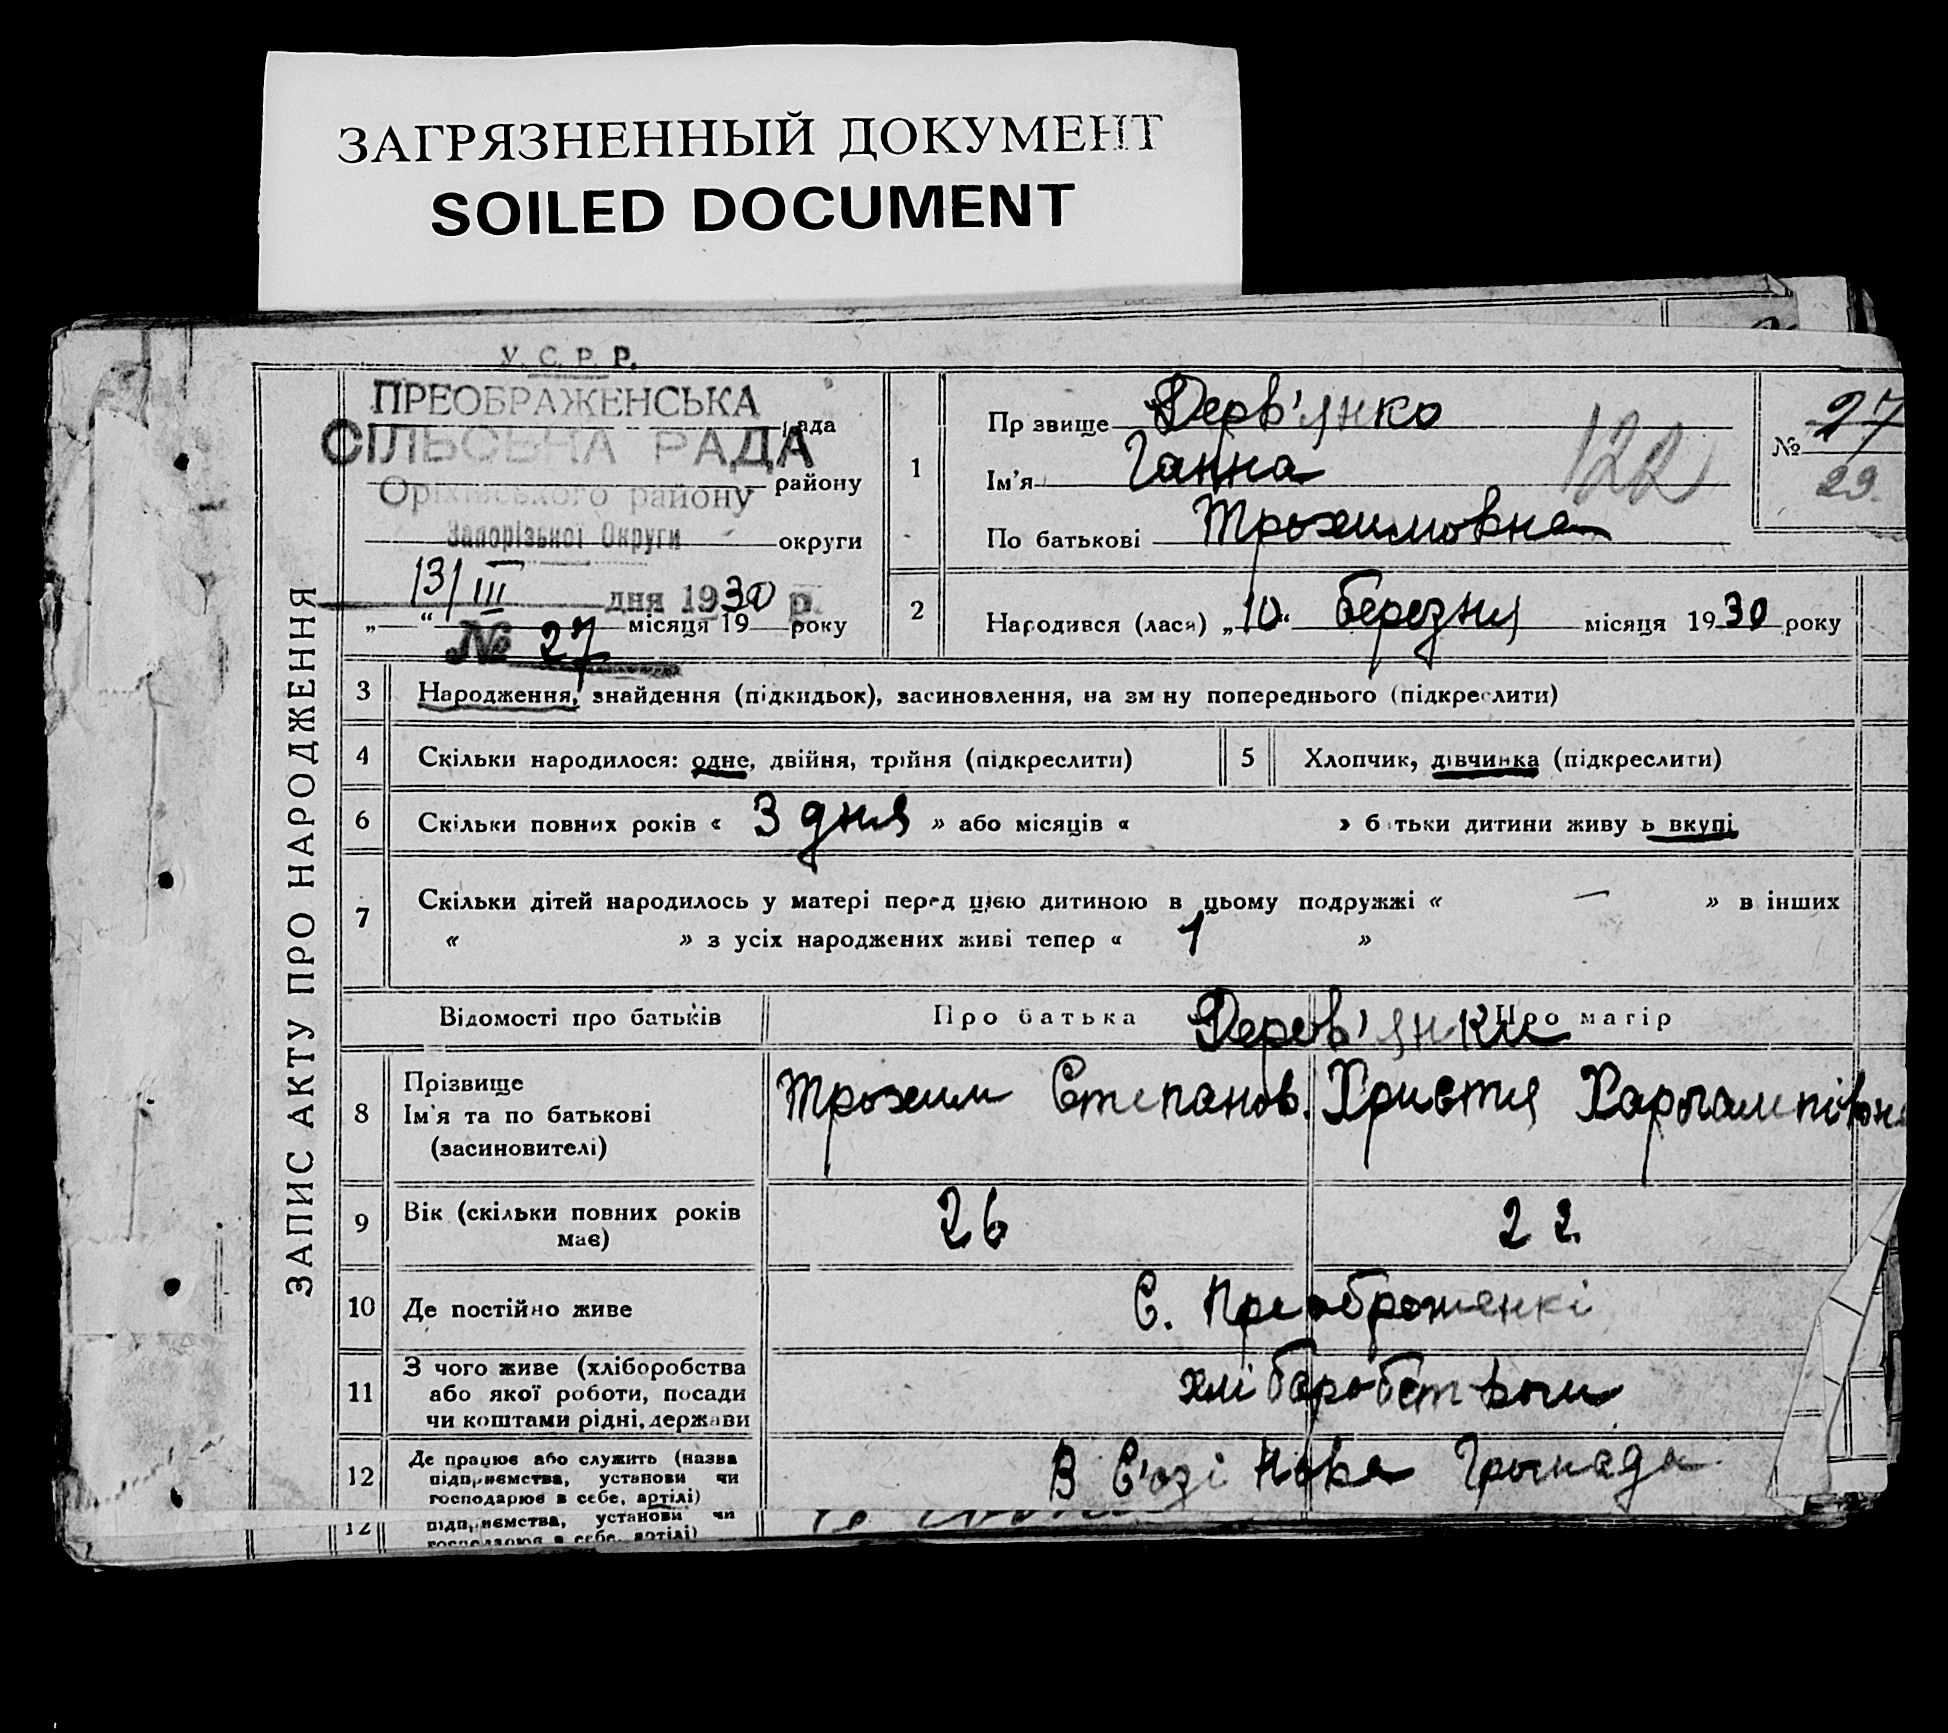 ЗАГРЯЗНЕННЫЙ ДОКУМЕНТ
SOILED DOCUMENT
У. С. Р. Р.
ПРЕОБРАЖЕНСЬКА
рада
СІЛЬСЬКА РАДА
району
Оріхівського району
Запорізької Округи
округи
13/III дня 1930 р.
„ “ місяця 19 року
№ 27
ЗАПИС АКТУ ПРО НАРОДЖЕННЯ
1
Пр звище Дерв'янко
Ім'я Ганна
По батькові Трохимовна
122
№ 27
29.
2
Народився (лася) „10“ березня місяця 1930 року
3 Народження, знайдення (підкидьок), засиновлення, на зм ну попереднього (підкреслити)
4 Скільки народилося: одне, двійня, трійня (підкреслити)
5 Хлопчик, дівчинка (підкреслити)
6 Скільки повних років « 3 дня » або місяців « » б тьки дитини живу ь вкупі
7 Скільки дітей народилось у матері перед цією дитиною в цьому подружжі « — » в інших
« » з усіх народжених живі тепер « 1 »
Відомості про батьків Про батька Про матір
Дерев'янки
8 Прізвище
Ім'я та по батькові
(засиновителі)
Трохим Степанов. Христя Харлампівн
9 Вік (скільки повних років
має)
26 22
10 Де постійно живе С. Преображенкі
11 З чого живе (хліборобства
або якої роботи, посади
чи коштами рідні, держави
хліборобством
12 Де працює або служить (назва
підприємства, установи чи
господарює в себе, артілі)
В С'озі Нова Громада
12 підприємства, установи чи
господарює в себе, артілі)